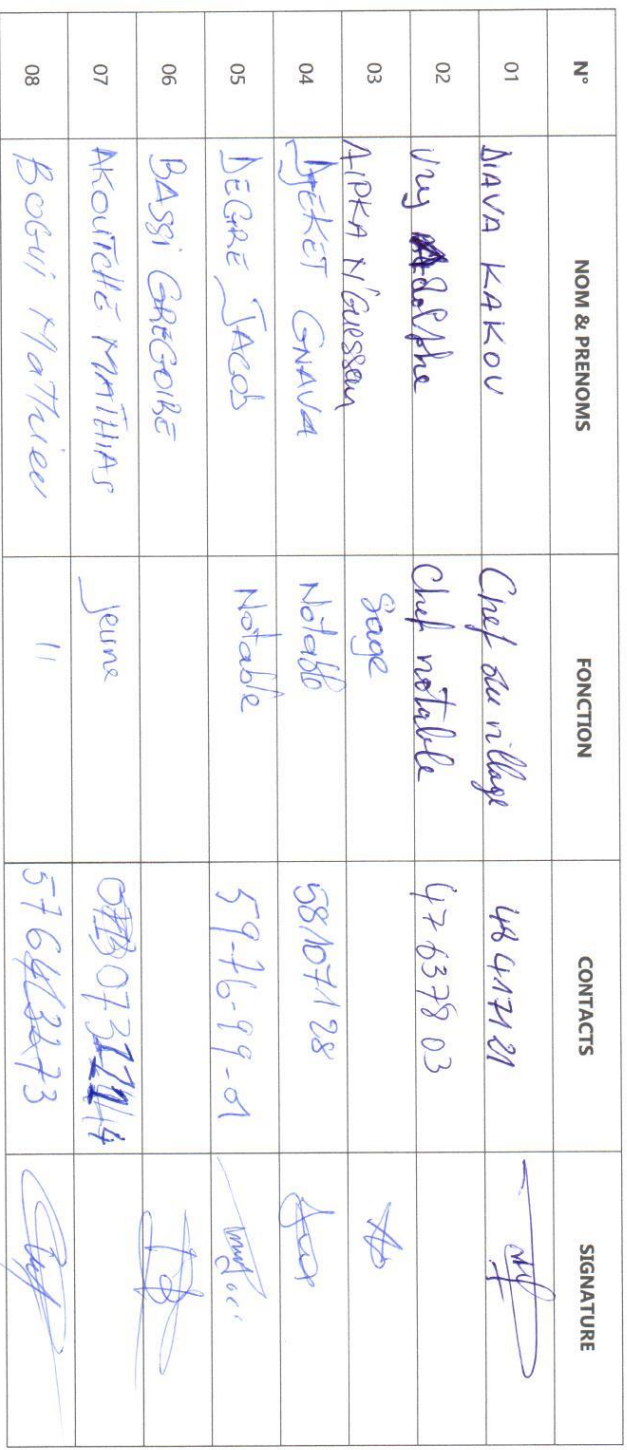 N° NOM & PRENOMS FONCTION CONTACTS SIGNATURE
01 DIAVA KAKOU Chef du village 48417121
02 Vry Adolphe Chef notable 47637803
03 AIPKA N'Guessan Sage
04 DJEKET GNAVA Notable 58107128
05 DEGRE JACOB Notable 59-76-99-01
06 BASSI GREGOIRE
07 AKOUTCHÉ MATHIAS Jeune
08 BOGUI Mathieu 11